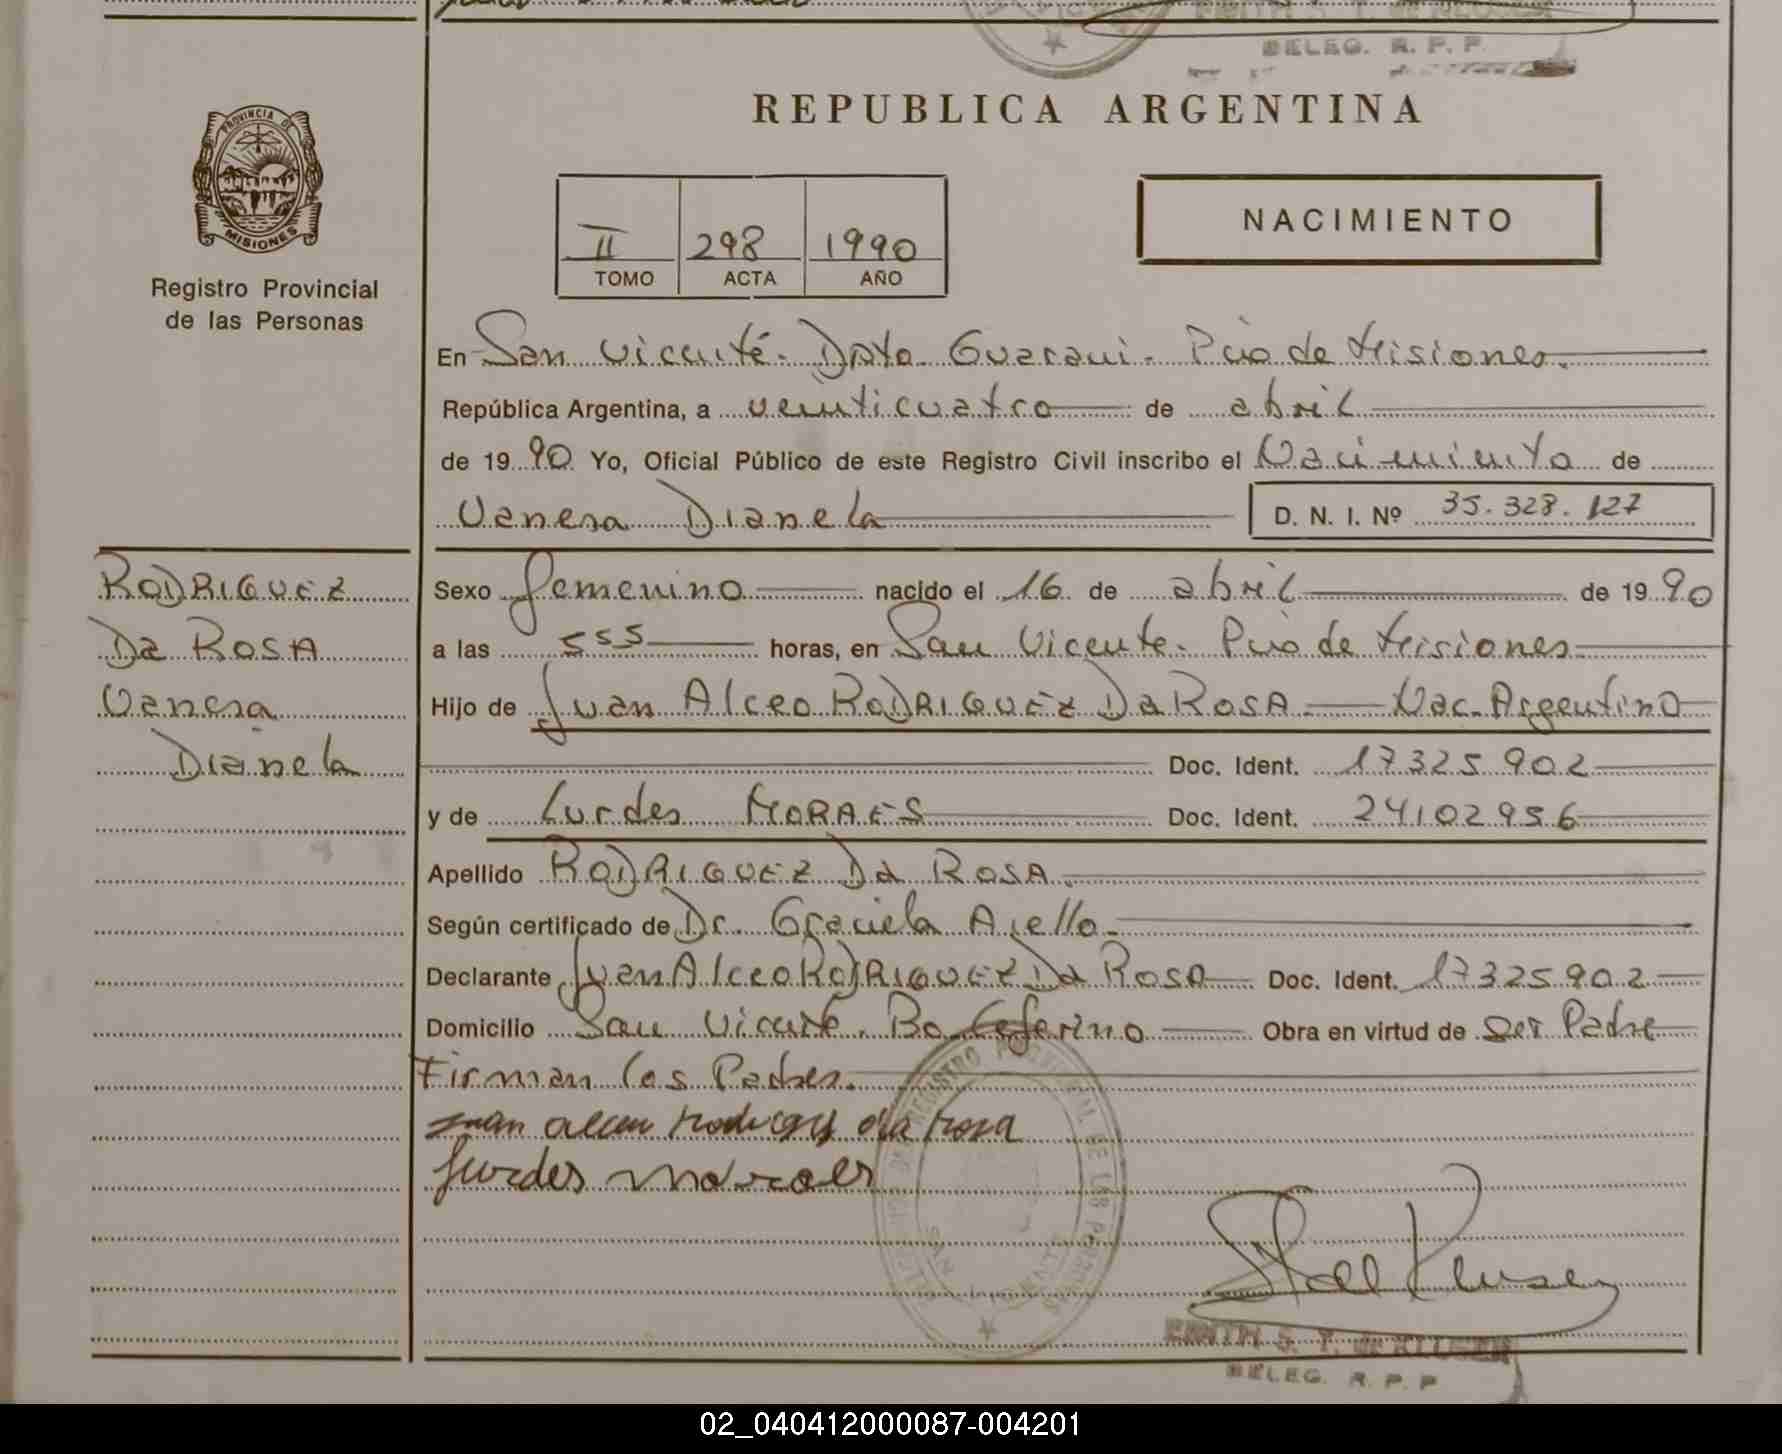 DELEG. R. P. P.
REPUBLICA ARGENTINA
PROVINCIA DE
MISIONES
Registro Provincial
de las Personas
II 298 1990
TOMO ACTA AÑO
NACIMIENTO
En San Vicente. Dpto. Guarani. Pcia de Misiones.
República Argentina, a veinticuatro de abril
de 1990 Yo, Oficial Público de este Registro Civil inscribo el Nacimiento de
Vanesa Dianela D. N. I. Nº 35.328.127
RODRIGUEZ
Da ROSA
Vanesa
Dianela
Sexo femenino nacido el 16 de abril de 1990
a las 555 horas, en San Vicente. Pcia de Misiones
Hijo de Juan Alceo RODRIGUEZ Da ROSA Nac. Argentino
Doc. Ident. 17325902
y de Lurdes MORAES Doc. Ident. 24102956
Apellido RODRIGUEZ Da ROSA.
Según certificado de Dr. Graciela Aiello
Declarante Juan Alceo RODRIGUEZ Da ROSA Doc. Ident. 17325902
Domicilio San Vicente. Bo Ceferino Obra en virtud de ser Padre
Firman los Padres.
Juan alceu Rodriguez da rosa
Lurdes moraes
EDITH S. T. de KLUSEN
DELEG. R. P. P
02_040412000087-004201